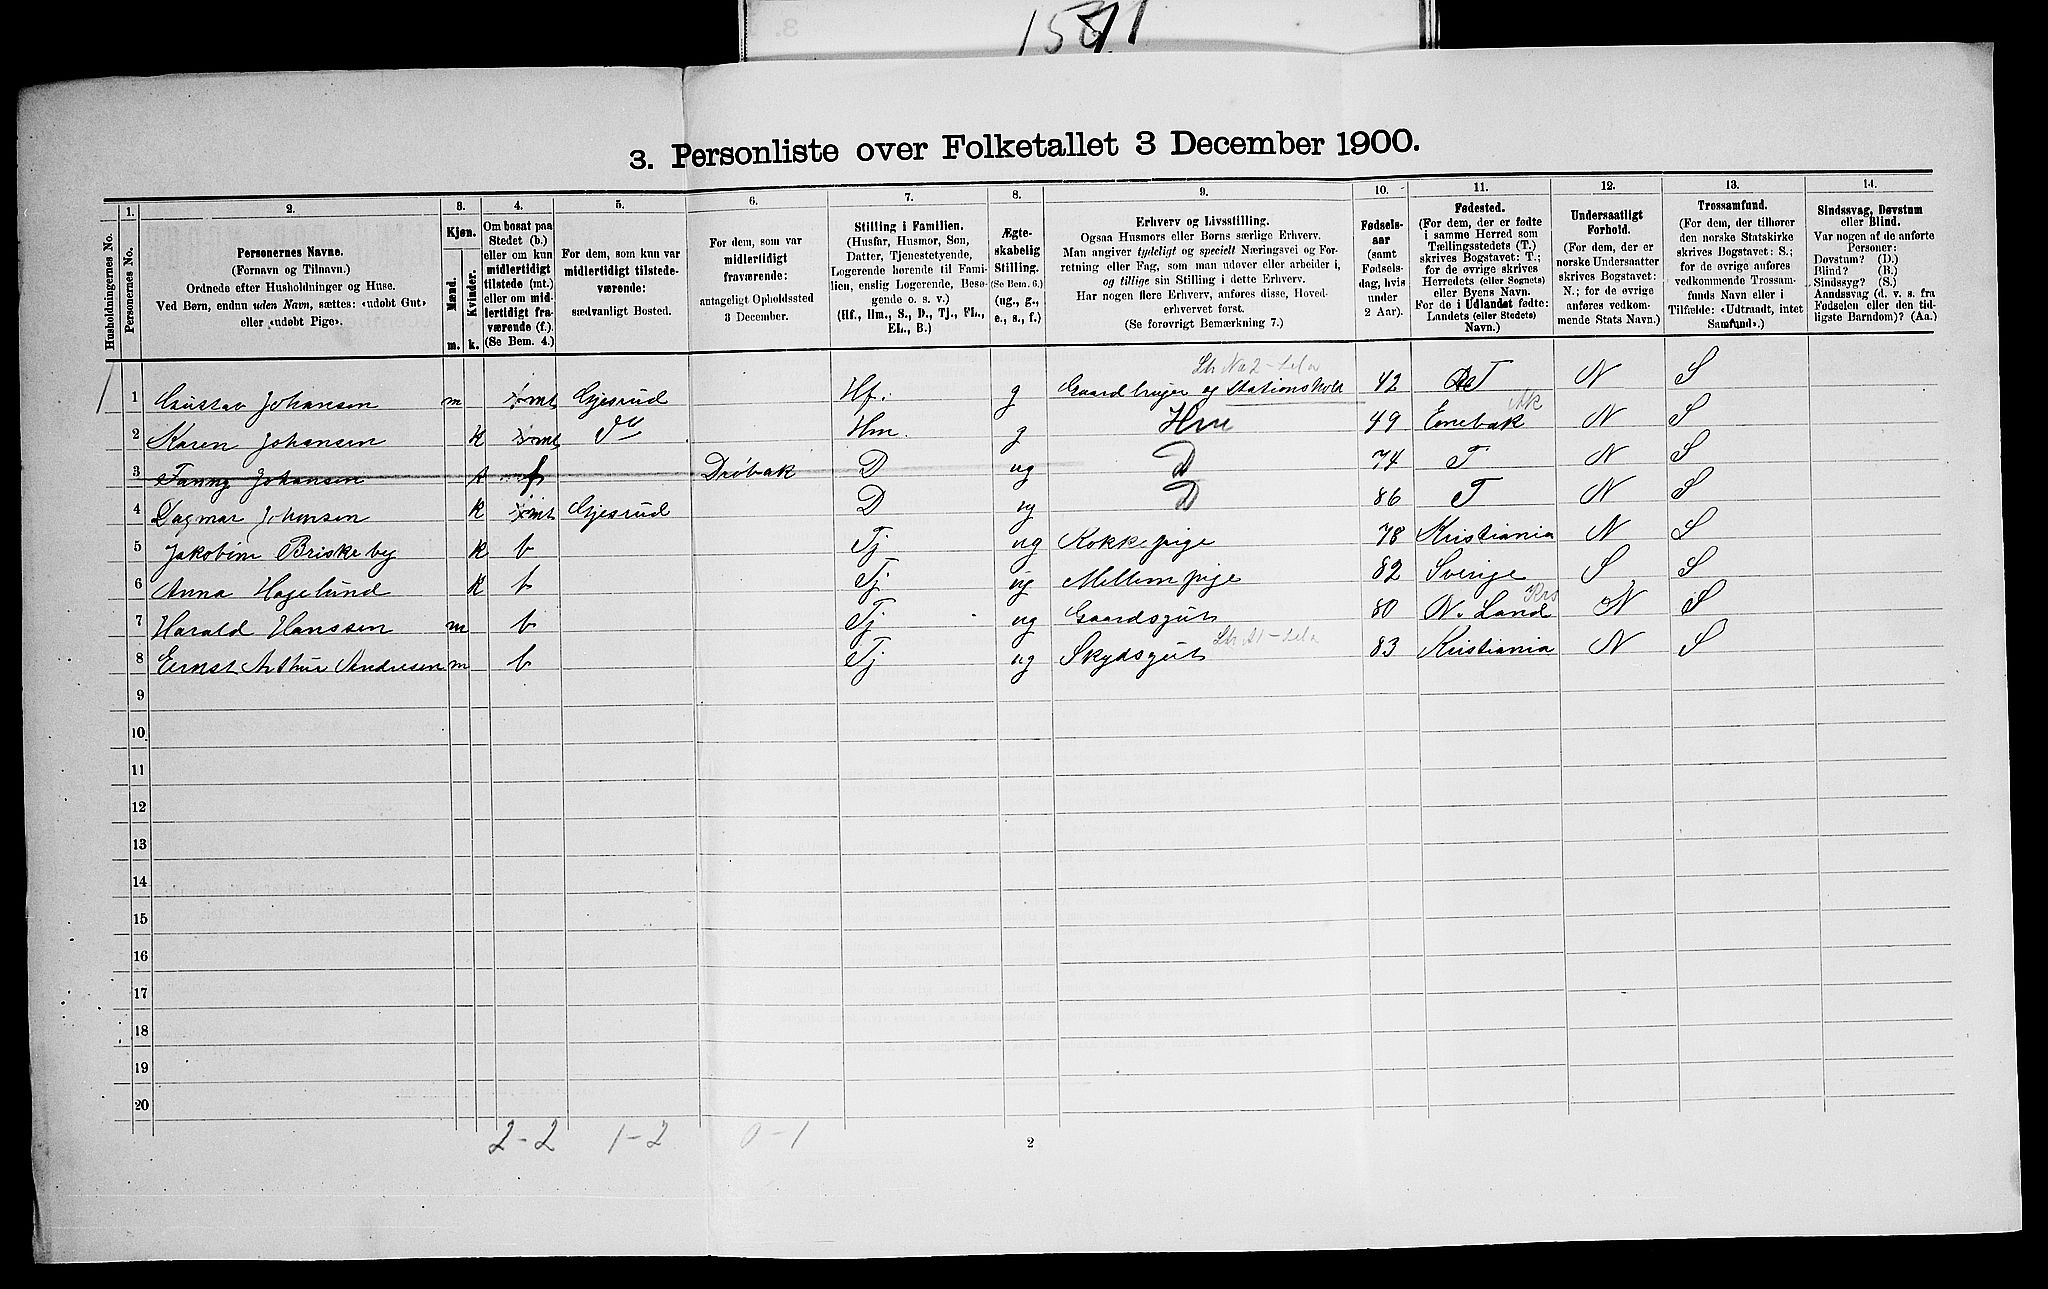 3. Personliste over Folketallet 3 December 1900.
1. 2. 3. 4. 5. 6. 7. 8. 9. 10. 11. 12. 13. 14.
Husholdningernes No.
Personernes No.
Personernes Navne.
(Fornavn og Tilnavn.)
Ordnede efter Husholdninger og Huse.
Ved Børn, endnu uden Navn, sættes: «udøbt Gut»
eller «udøbt Pige».
Kjøn.
Mænd. Kvinder.
m. k.
Om bosat paa
Stedet (b.)
eller om kun
midlertidigt
tilstede (mt.)
eller om mid-
lertidigt fra-
værende (f.)
(Se Bem. 4.)
For dem, som kun var
midlertidigt tilstede-
værende:
sædvanligt Bosted.
For dem, som var
midlertidigt
fraværende:
antageligt Opholdssted
3 December.
Stilling i Familien.
(Husfar, Husmor, Søn,
Datter, Tjenestetyende,
Logerende hørende til Fami-
lien, enslig Logerende, Besø-
gende o. s. v.)
(Hf., Hm., S., D., Tj., FL.,
EL., B.)
Ægte-
skabelig
Stilling.
(Se Bem. 6.)
(ug., g.,
e., s., f.)
Erhverv og Livsstilling.
Ogsaa Husmors eller Børns særlige Erhverv.
Man angiver tydeligt og specielt Næringsvei og For-
retning eller Fag, som man udøver eller arbeider i,
og tillige sin Stilling i dette Erhverv.
Har nogen flere Erhverv, anføres disse, Hoved-
erhvervet først.
(Se forøvrigt Bemærkning 7.)
Fødsels-
aar
(samt
Fødsels-
dag, hvis
under
2 Aar).
Fødested.
(For dem, der er fødte
i samme Herred som
Tællingsstedets (T.)
skrives Bogstavet: T.;
for de øvrige skrives
Herredets (eller Sognets)
eller Byens Navn.
For de i Udlandet fødte:
Landets (eller Stedets)
Navn.)
Undersaatligt
Forhold.
(For dem, der er
norske Undersaatter
skrives Bogstavet:
N.; for de øvrige
anføres vedkom-
mende Stats Navn.)
Trossamfund.
(For dem, der tilhører
den norske Statskirke
skrives Bogstavet: S.;
for de øvrige anføres
vedkommende Trossam-
funds Navn eller i
Tilfælde: «Udtraadt, intet
Samfund».)
Sindssvag, Døvstum
eller Blind.
Var nogen af de anførte
Personer:
Døvstum? (D.)
Blind? (B.)
Sindssyg? (S.)
Aandssvag (d. v. s. fra
Fødselen eller den tid-
ligste Barndom)? (Aa.)
1 Gustav Johansen m mt Gjesrud Hf. g Gaardbruger og Stationshold 42 T N S
2 Karen Johansen k mt Do Hm. g Hm 49 Enebak Ak N S
3 Fanny Johansen k f Drøbak D ug D 74 T N S
4 Dagmar Johansen k mt Gjesrud D ug D 86 T N S
5 Jakobine Briskeby k b Tj ug Kokkepige 78 Kristiania N S
6 Anna Hagelund k b Tj ug Mellempige 82 Sverige S S
7 Harald Hanssen m b Tj ug Gaardsgut 80 N. Land Krs N S
8 Ernst Arthur Andresen m b Tj ug Skydsgut 83 Kristiania N S
9
10
11
12
13
14
15
16
17
18
19
20
2-2 1-2 0-1
2